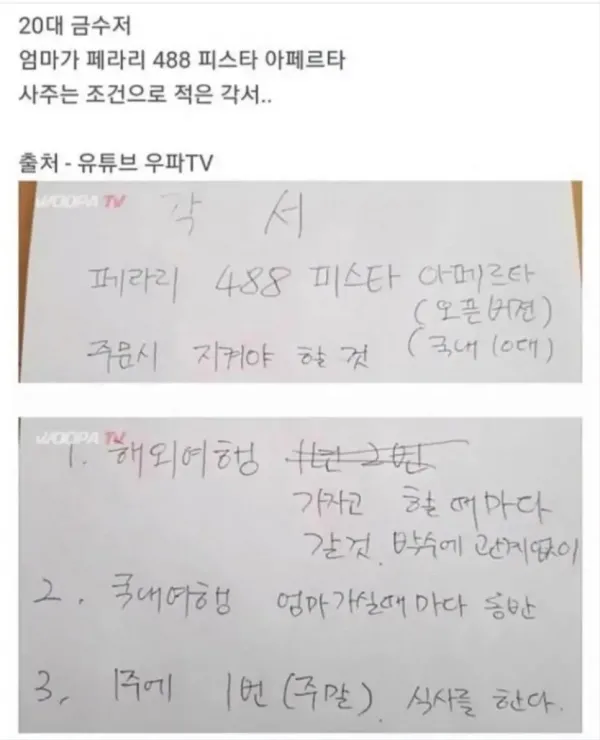 20대 금수저
엄마가 페라리 488 피스타 아페르타
사주는 조건으로 적은 각서..
출처 - 유튜브 우파TV
WOOPA TV
각 서
페라리 488 피스타 아페르타
(오픈버젼)
주문시 지켜야 할 것 (국내 10대)
WOOPA TV
1. 해외여행 1년 2번
가자고 할때마다
갈것. 박수에 관계없이
2. 국내여행 엄마가실때마다 동반
3. 1주에 1번(주말). 식사를 한다.